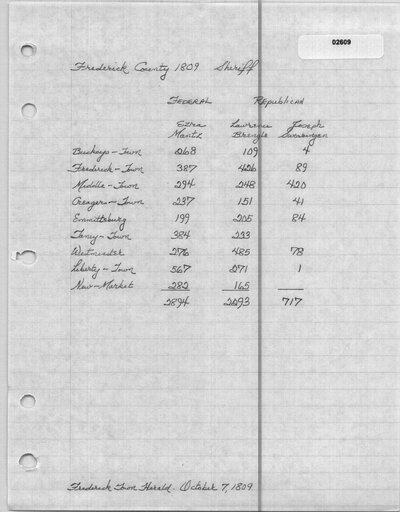 02609
Frederick County 1809 Sheriff
FEDERAL REPUBLICAN
Ezra Lawrence Joseph
Mantz Brengle Swearingen
Buckeys-Town 268 109 4
Frederick-Town 387 426 89
Middle-Town 294 248 420
Creagers-Town 237 151 41
Emmittsburg 199 205 84
Taney-Town 384 233
Westminster 276 485 78
Liberty-Town 567 271 1
New-Market 282 165
2894 2293 717
Frederick Town Herald. October 7, 1809